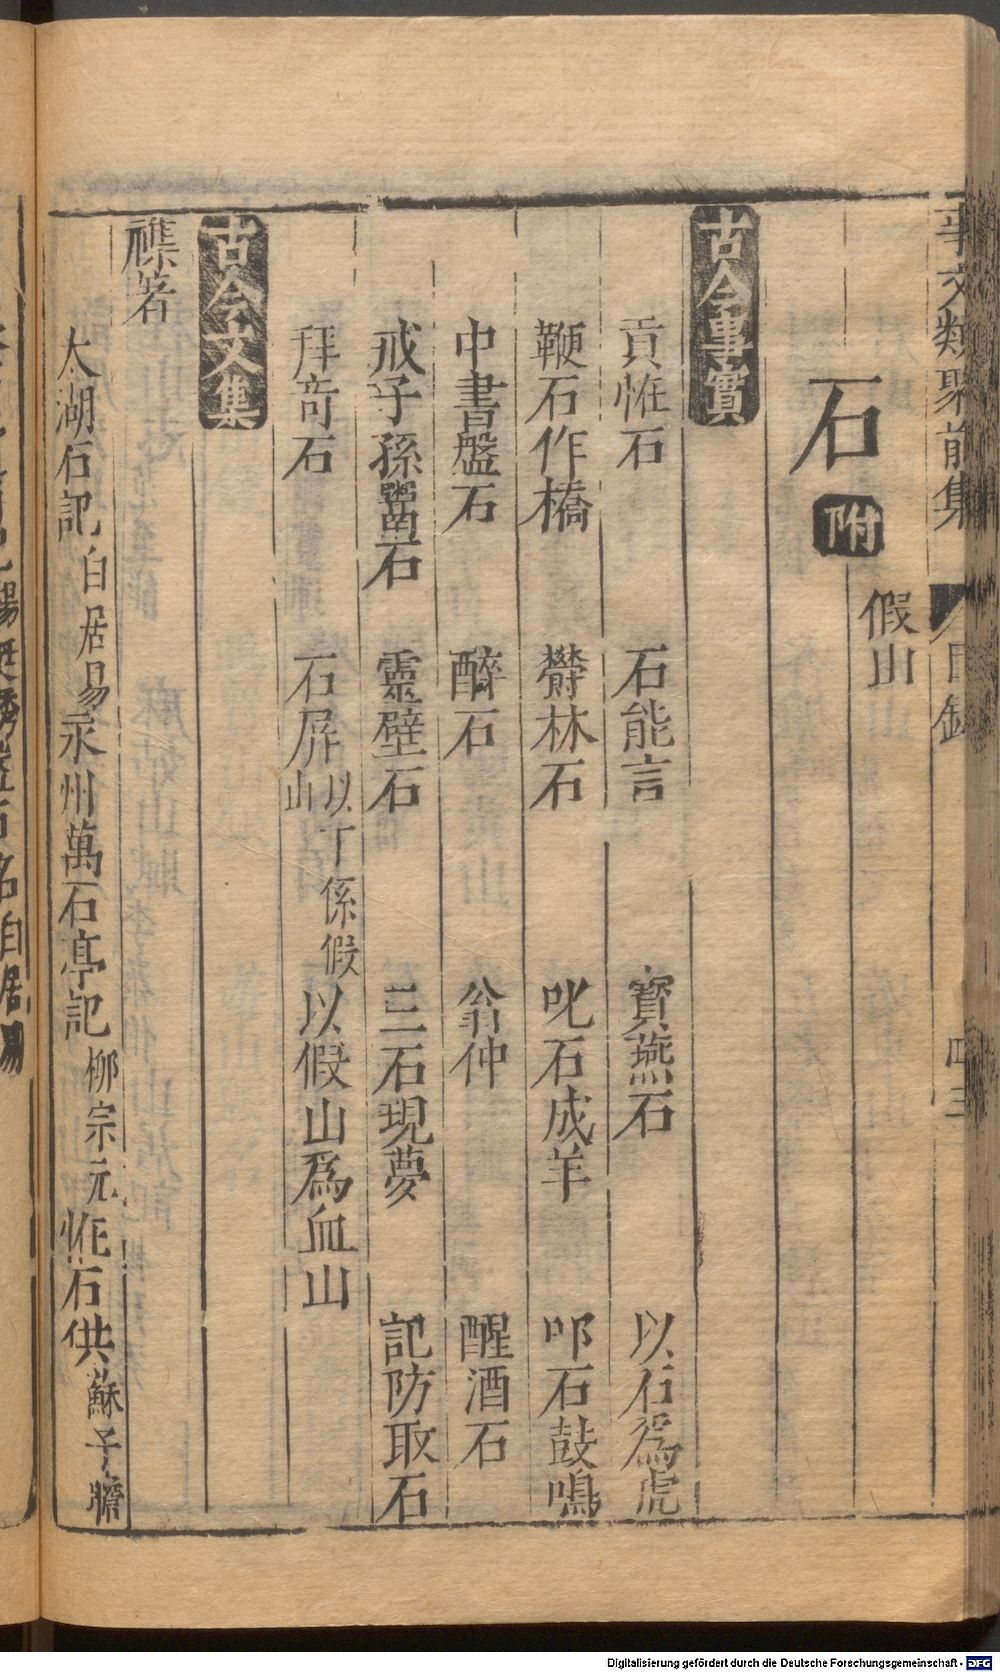 事文類聚前集 目錄 四三
假山
石 附
古今事實
貢恠石 石能言 寳燕石 以石爲虎
鞭石作橋 欎林石 叱石成羊 叩石鼓鳴
中書盤石 醉石 翁仲 醒酒石
戒子孫鬻石 靈壁石 三石現夢 記防取石
拜竒石 石屛 以丁係假山 以假山爲血山
古今文集
襍著
太湖石記 白居易 永州萬石亭記 柳宗元 恠石供 蘇子瞻
石名 白居易
Digitalisierung gefördert durch die Deutsche Forschungsgemeinschaft - DFG